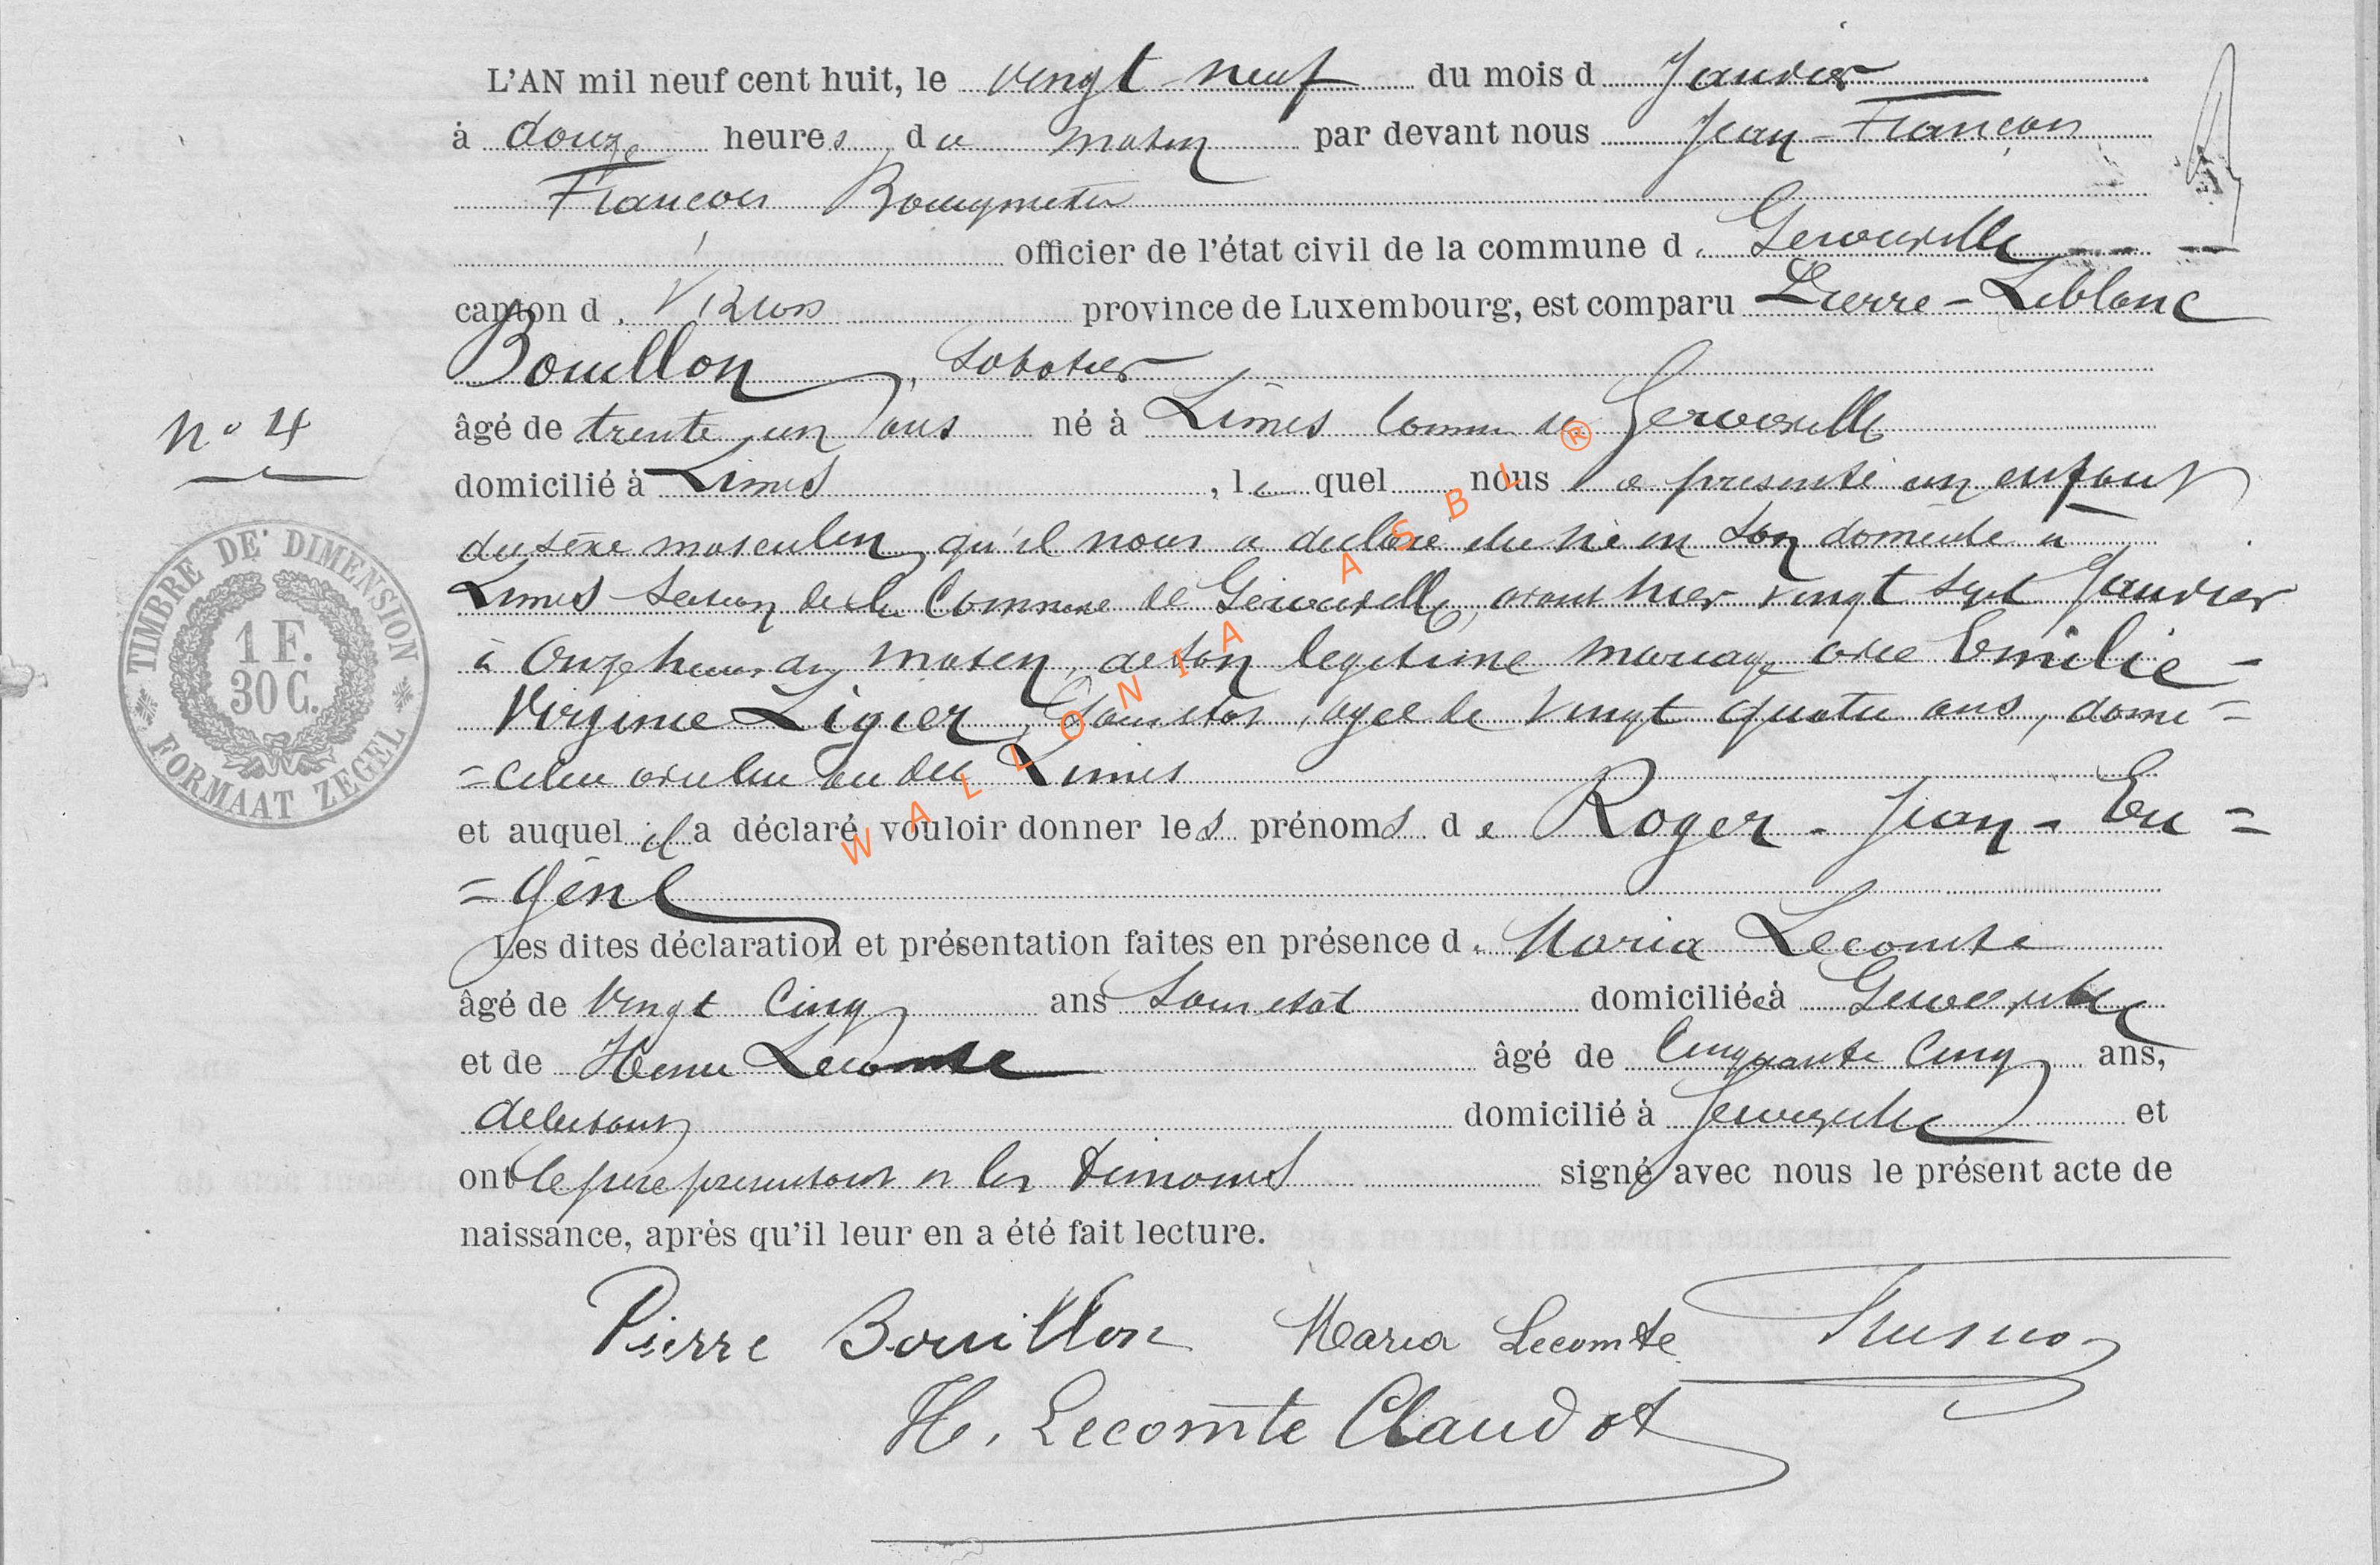 L'AN mil neuf cent huit, le vingt-neuf du mois d Janvier
à douze heures du matin par devant nous Jean-François
François Bourgmestre
officier de l'état civil de la commune d. Gerouville
canton d. Virton province de Luxembourg, est comparu Pierre-Leblanc
Bouillon, Sabotier
âgé de trente un ans né à Limes Commune de Gerouville
N° 4
domicilié à Limes, le quel nous a présenté un enfant
du sexe masculin, qu'il nous a déclaré être né en son domicile à
Limes Section de la Commune de Gerouville, avant hier vingt sept Janvier
à Onze heures du matin, de son légitime mariage avec Emilie-
Virginie Ligier, Sans état, agée de vingt quatre ans, domi=
=ciliée avec lui au dit Limes
et auquel il a déclaré vouloir donner les prénoms de Roger-Jean-Eu=
=gène
Les dites déclaration et présentation faites en présence d. Maria Lecomte
âgé de Vingt Cinq ans Sans état domiciliée à Gerouville
et de Henri Lecomte âgé de Cinquante Cinq ans,
débitant domicilié à Gerouville et
ont le père présentant et les témoins signé avec nous le présent acte de
naissance, après qu'il leur en a été fait lecture.
Pierre Bouillon Maria Lecomte
H. Lecomte Claudot
TIMBRE DE DIMENSION
1 F.
30 C.
FORMAAT ZEGEL
WALLONIA ASBL ®